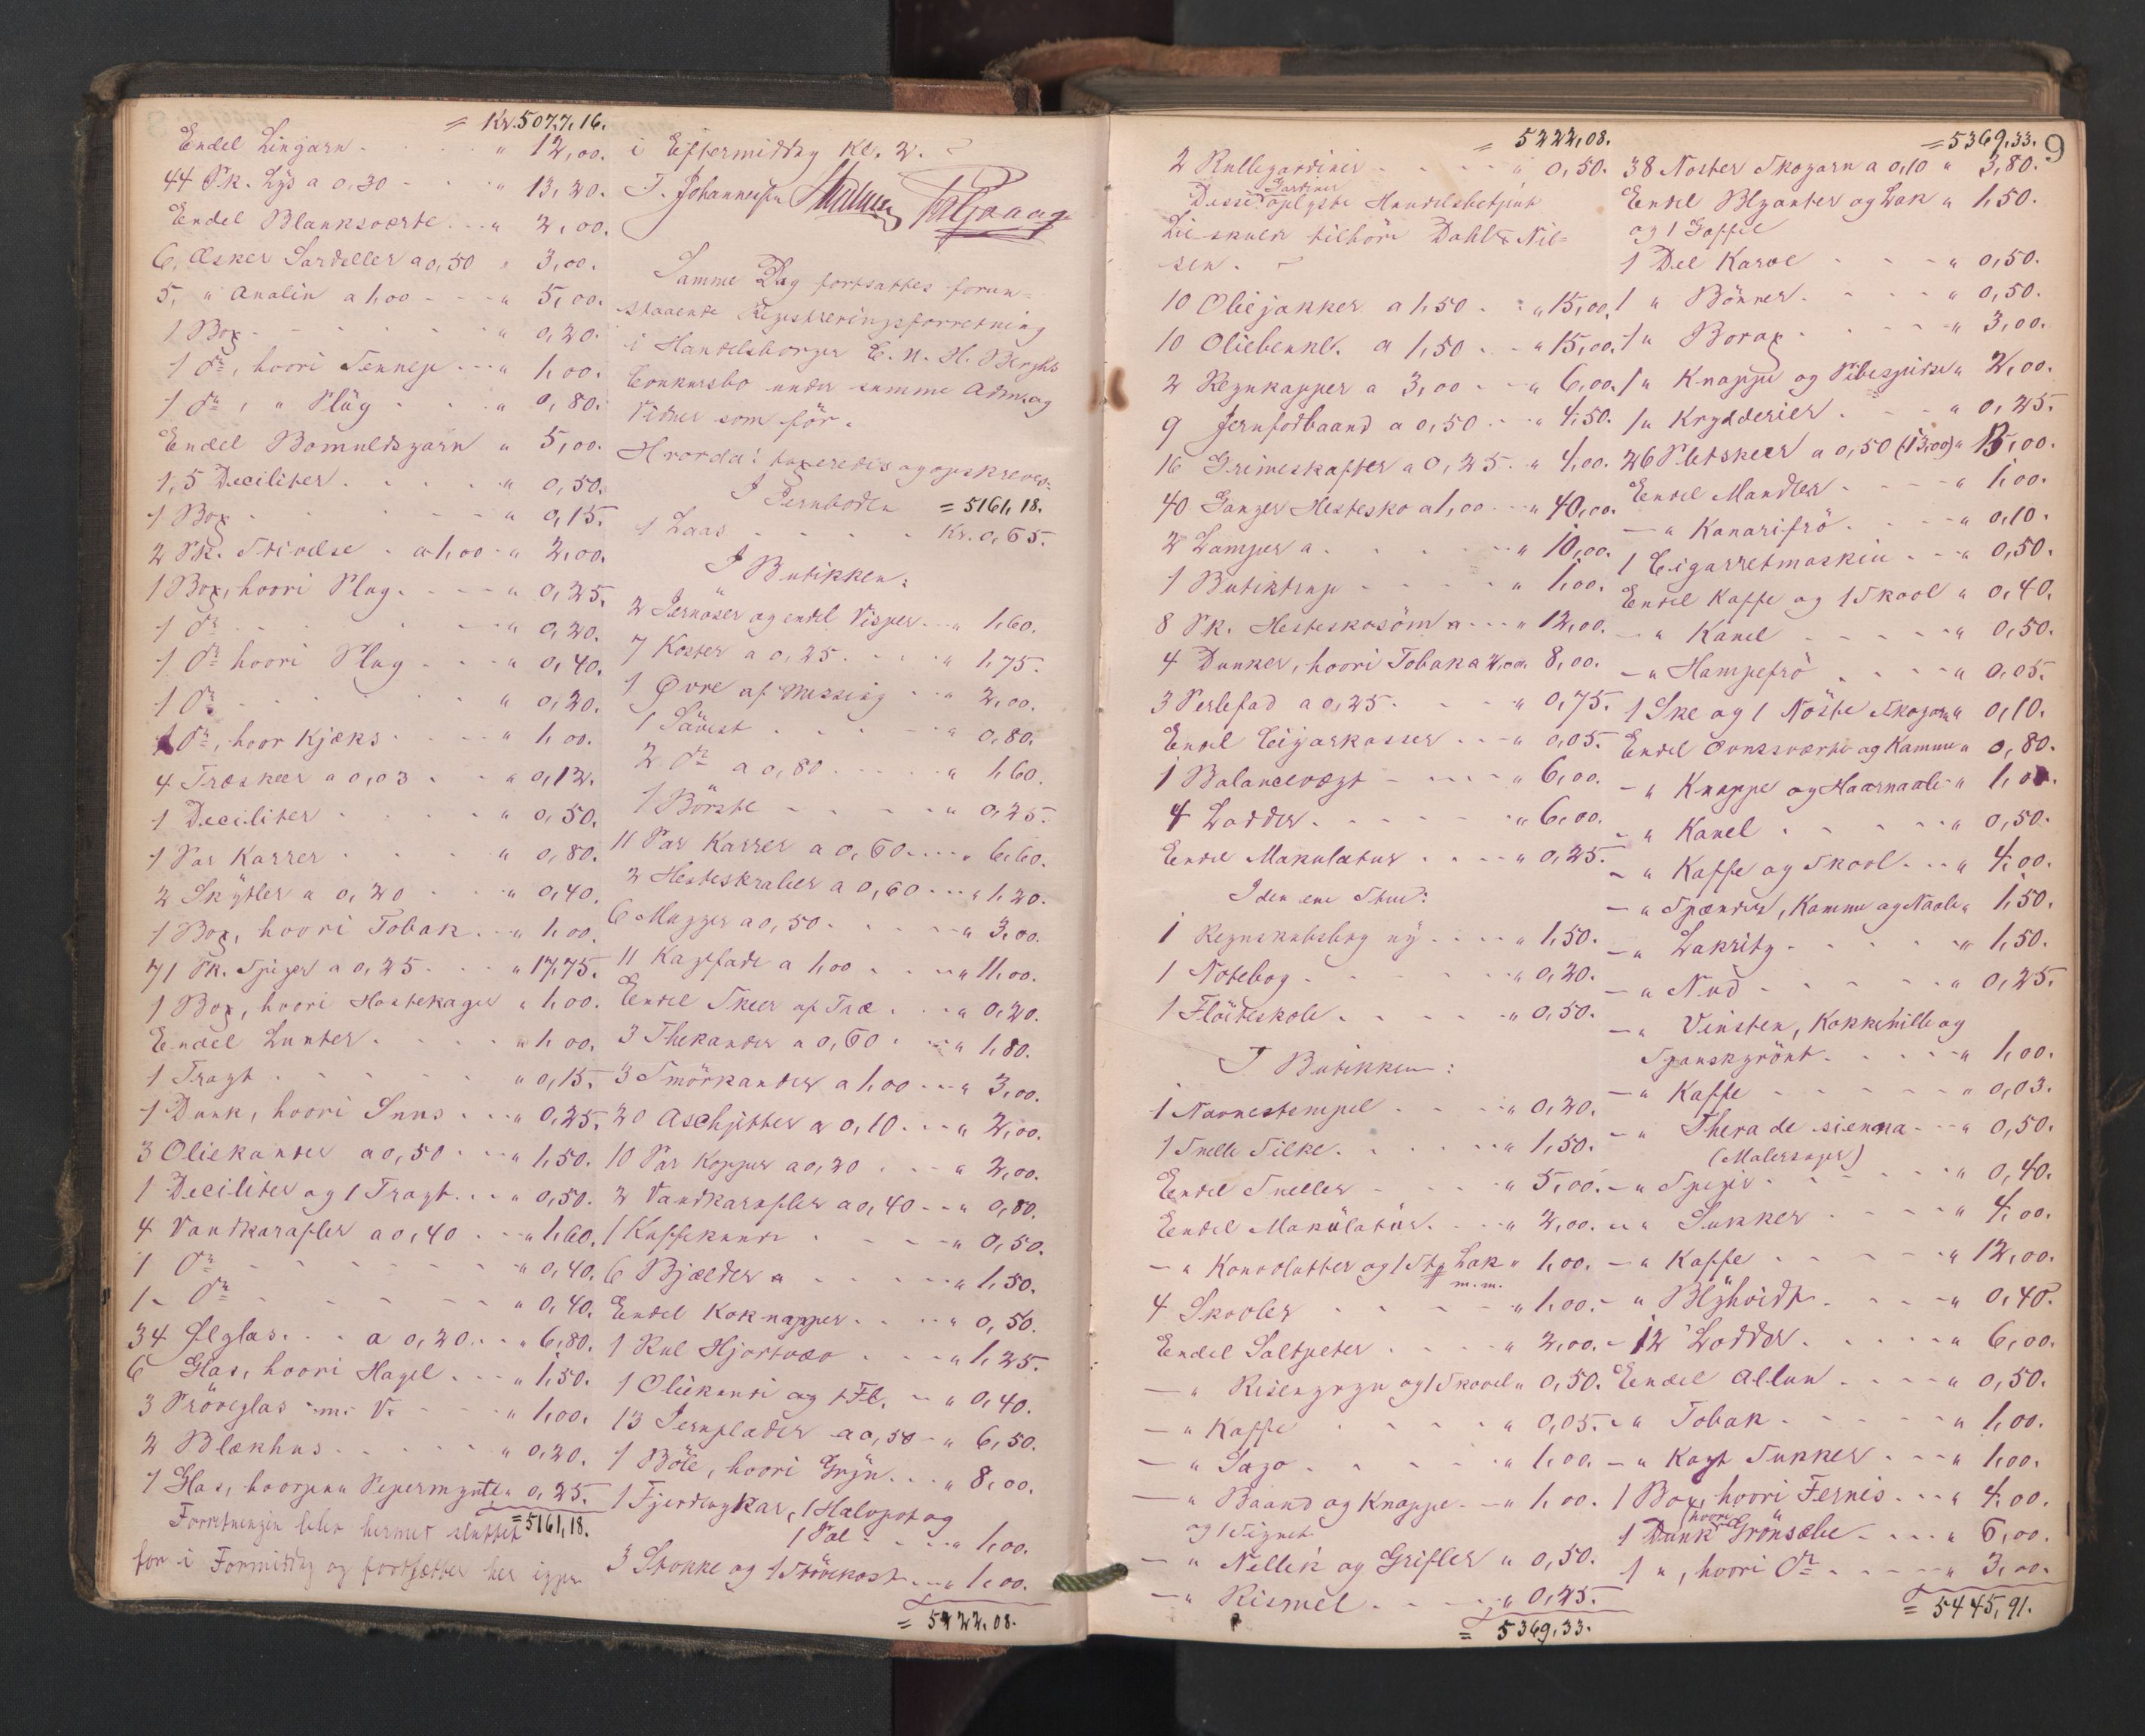 = Kr. 5077,16.
Endel Lingarn . . . " 12,00.
44 Pk. Lys a 0,30 - . . " 13,20.
Endel Blanksværte . . . " 2,00.
6 Æsker Sardeller a 0,50 " 3,00.
5 " Analin a 1,00 - - - " 5,00.
1 Box - . . . . " 0,20.
1 do, hvori Sennep . . . " 1,00.
1 do, " Plüg . . . " 0,80.
Endel Bomuldsgarn " 5,00.
1, 5 Deciliter . . . . " 0,50.
1 Box . . . . " 0,15.
2 Pk. Stivelse . a 1,00 . " 2,00.
1 Box, hvori Plug . . . " 0,25.
1 do . . . . " 0,20.
1 do hvori Plug . . . " 0,40.
1 do . . . . " 0,20.
1 do, hvor Kjæks . . . " 1,00.
4 Træskeer a 0,03 . . " 0,12.
1 Deciliter . . . . " 0,50.
1 Par Karrer . . . " 0,80.
2 Skytler a 0,20 . . " 0,40.
1 Box, hvori Tobak . . " 1,00.
71 Pk. Spiger a 0,25 . . . " 17,75.
1 Box, hvori Hostekager " 1,00.
Endel Lunter . . . . " 1,00.
1 Tragt . . . . . " 0,15.
1 Dunk, hvori Snus . . . " 0,25.
3 Oliekander a 0,50 . . . " 1,50.
1 Deciliter og 1 Tragt . . . " 0,50.
4 Vandkarafler a 0,40 . . " 1,60.
1 do - - - - - " 0,40.
1 - do - - - - - " 0,40.
34 Ølglas . . . a 0,20 . . . " 6,80.
6 Glas, hvori Hagel . . . " 1,50.
3 Pröveglas m. V. - - . " 1,00.
2 Blækhus . . . . " 0,20.
1 Glas, hvorpaa Pepermynte " 0,25.
= 5161,18.
Forretningen blev hermed sluttet
for i Formiddag og fortsætter her igjen
i Eftermiddag Kl. 2.
J. Johannesen
Samme Dag fortsattes foran-
staaende Registreringsforretning
i Handelsborger C. N. H. Berghs
Conkursbo under samme Adm. og
Vidner som för.
Hvorda: taxeredes og opskreves:
I Jernboden = 5161,18.
1 Laas . . . . Kr. 0,65.
I Butikken:
2 Jernöser og endel Visper . . " 1,60.
7 Koster a 0,25 . . . . " 1,75.
1 Øvre af Messing . . " 2,00.
1 . . . . " 0,80.
2 do a 0,80 . . . . " 1,60.
1 Börste - . . . . " 0,25.
11 Par Karrer a 0,60 . . . " 6,60.
2 Hesteskraber a 0,60 . . . " 1,20.
6 Mugger a 0,50 . . . . " 3,00.
11 Kagefade a 1,00 . . . " 11,00.
Endel Skeer af Træ . . . " 0,20.
3 Thekander a 0,60 . . . " 1,80.
3 Smörkander a 1,00 . . . " 3,00.
20 Aschjetter a 0,10 . . . " 2,00.
10 Par Kopper a 0,20 . . . " 2,00.
2 Vandkarafler a 0,40 . . . " 0,80.
1 Kaffekande . . . . " 0,50.
6 Bjælder a . . . . " 1,50.
Endel Koknapper . . . " 0,50.
1 Rul Hjortvæv . . . " 1,25.
1 Oliekande og 1 Fl. . . " 0,40.
13 Jernplader a 0,50 - " 6,50.
1 Böle, hvori Gryn . . . " 8,00.
1 Fjerdingkar, 1 Halvpot og
1 Pæl . . . " 1,00.
3 Stokke og 1 Stövekost . . . " 1,00.
= 5222,08.
9
= 5222,08.
2 Rullegardiner . . . " 0,50.
Disse Gardiner oplyste Handelsbetjent
Lie skulde tilhöre Dahl & Nil-
sen.
10 Oliejakker a 1,50 . . " 15,00.
10 Oliebenkl. a 1,50 . . " 15,00.
2 Regnkapper a 3,00 . . " 6,00.
9 Jernfodbaand a 0,50 . . " 4,50.
16 Grimeskafter a 0,25 . " 4,00.
40 Ganger Hestesko a 1,00 . . " 40,00.
2 Lamper a . . . . " 10,00.
1 Butiktrap - - - - " 1,00.
8 Pk. Hesteskosöm a . . . " 12,00.
4 Dunker, hvori Tobak a 2,00 " 8,00.
3 Perlefad a 0,25 . . . " 0,75.
Endel Cigarkasser . . . " 0,05.
1 Balancevægt - . . . " 6,00.
4 Lodder . . . . . " 6,00.
Endel Makulatur . . . . " 0,25.
I den ene Stue:
1 Regnskabsbog ny . . . . " 1,50.
1 Notebog . . . . . " 0,20.
1 Flöiteskole . . . . . " 0,50.
I Butikken:
1 Navnestempel . . . . " 0,20.
1 Snelle Silke . . . . . " 1,50.
Endel Sneller - . . . " 5,00.
Endel Makülatür . . . " 2,00.
- " Konvolutter og 1 St. Lak " 1,00.
m.m.
4 Skovler . . . . " 1,00.
Endel Saltpeter . . . . " 2,00.
- " Risengryn og 1 Skovel " 0,50.
- " Kaffe . . . . " 0,05.
- " Sago . . . . . " 1,00.
- " Baand og Knappe . - " 1,00.
og 1 Signet
- " Nellik og Grifler " 0,50.
- " Rismel . . . . " 0,25.
= 5369,33.
= 5369,33.
38 Nöster Skogarn a 0,10 " 3,80.
Endel Blyanter og Lak " 1,50.
og 1 Gaffel
1 Del Karve . . . " 0,50.
1 " Bönner . . . . " 0,50.
1 " Borax . . . . " 3,00.
1 " Knapper og Pibespidse " 2,00.
1 " Krydderier . . . " 0,25.
26 Pletskeer a 0,50 (13,00) " 15,00.
Endel Mandler . . . . " 1,00.
- " Kanarifrö . . . . " 0,10.
1 Cigarretmaskin . . . " 0,50.
Endel Kaffe og 1 Skovl " 0,40.
- " Kanel - - - - - " 0,50.
- " Hampefrö . . . . " 0,05.
1 Ske og 1 Nöste Skogarn " 0,10.
Endel Ovnssværte og Kamme " 0,80.
- " Knappe og Haarnaale " 1,00.
- " Kanel . . . . . " 0,50.
- " Kaffe og Skovl . . . " 4,00.
- " Spænder, Kamme og Naale " 1,50.
- " Lakrits . . . . . " 1,50.
- " Nud . . . . . " 0,25.
- " Vinsten, Kokkenille og
Spanskgrönt . . . . " 1,00.
- " Kaffe - - - - - " 0,03.
- " Thera de sienna . . . " 0,50.
(Malersager)
- " Spiger . . . . . " 0,40.
- " Sukker . . . . " 4,00.
- " Kaffe . . . . " 12,00.
- " Blyhvidt . . . . " 0,40.
- 12 Lodder . . . . . " 6,00.
Endel Allun . . . . " 0,50.
- " Tobak . . . . . " 1,00.
- " Kagt Sukker . . . " 1,00.
1 Box, hvori Fernis . . . " 4,00.
1 Dunk hvori Grönsæbe . . . . " 6,00.
1 " , hvori do . . . . . " 3,00.
= 5445,91.